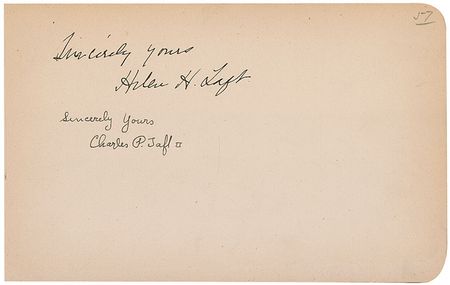 57
Sincerely yours
Helen H. Taft
Sincerely Yours
Charles P. Taft II